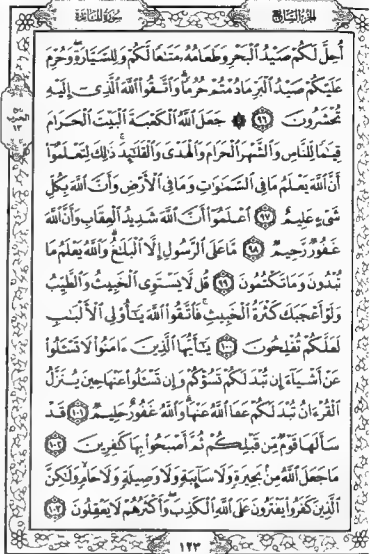 سورة المائدة
الجزء السابع
أُحِلَّ لَكُمْ صَيْدُ ٱلْبَحْرِ وَطَعَامُهُۥ مَتَٰعًا لَّكُمْ وَلِلسَّيَّارَةِۖ وَحُرِّمَ
عَلَيْكُمْ صَيْدُ ٱلْبَرِّ مَا دُمْتُمْ حُرُمًاۗ وَٱتَّقُوا۟ ٱللَّهَ ٱلَّذِىٓ إِلَيْهِ
تُحْشَرُونَ ٩٦ ۞ جَعَلَ ٱللَّهُ ٱلْكَعْبَةَ ٱلْبَيْتَ ٱلْحَرَامَ
قِيَٰمًا لِّلنَّاسِ وَٱلشَّهْرَ ٱلْحَرَامَ وَٱلْهَدْىَ وَٱلْقَلَٰٓئِدَۚ ذَٰلِكَ لِتَعْلَمُوٓا۟
أَنَّ ٱللَّهَ يَعْلَمُ مَا فِى ٱلسَّمَٰوَٰتِ وَمَا فِى ٱلْأَرْضِ وَأَنَّ ٱللَّهَ بِكُلِّ
شَىْءٍ عَلِيمٌ ٩٧ ٱعْلَمُوٓا۟ أَنَّ ٱللَّهَ شَدِيدُ ٱلْعِقَابِ وَأَنَّ ٱللَّهَ
غَفُورٌ رَّحِيمٌ ٩٨ مَّا عَلَى ٱلرَّسُولِ إِلَّا ٱلْبَلَٰغُۗ وَٱللَّهُ يَعْلَمُ مَا
تُبْدُونَ وَمَا تَكْتُمُونَ ٩٩ قُل لَّا يَسْتَوِى ٱلْخَبِيثُ وَٱلطَّيِّبُ
وَلَوْ أَعْجَبَكَ كَثْرَةُ ٱلْخَبِيثِۚ فَٱتَّقُوا۟ ٱللَّهَ يَٰٓأُو۟لِى ٱلْأَلْبَٰبِ
لَعَلَّكُمْ تُفْلِحُونَ ١٠٠ يَٰٓأَيُّهَا ٱلَّذِينَ ءَامَنُوا۟ لَا تَسْـَٔلُوا۟
عَنْ أَشْيَآءَ إِن تُبْدَ لَكُمْ تَسُؤْكُمْ وَإِن تَسْـَٔلُوا۟ عَنْهَا حِينَ يُنَزَّلُ
ٱلْقُرْءَانُ تُبْدَ لَكُمْ عَفَا ٱللَّهُ عَنْهَاۗ وَٱللَّهُ غَفُورٌ حَلِيمٌ ١٠١ قَدْ
سَأَلَهَا قَوْمٌ مِّن قَبْلِكُمْ ثُمَّ أَصْبَحُوا۟ بِهَا كَٰفِرِينَ ١٠٢
مَا جَعَلَ ٱللَّهُ مِنۢ بَحِيرَةٍ وَلَا سَآئِبَةٍ وَلَا وَصِيلَةٍ وَلَا حَامٍۙ وَلَٰكِنَّ
ٱلَّذِينَ كَفَرُوا۟ يَفْتَرُونَ عَلَى ٱللَّهِ ٱلْكَذِبَۖ وَأَكْثَرُهُمْ لَا يَعْقِلُونَ ١٠٣
١٢٣